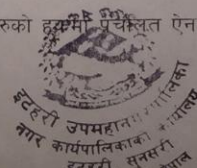 रुको हकमा प्रचलित ऐन
इटहरी उपमहानगरपालिका
नगर कार्यपालिकाको कार्यालय
इटहरी सुनसरी